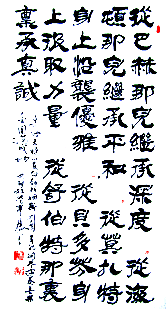 從巴赫那兒繼承深度 從海
頓那兒繼承平和 從莫扎特
身上沿襲優雅 從貝多芬身
上汲取力量 從舒伯特那裏
稟承真誠